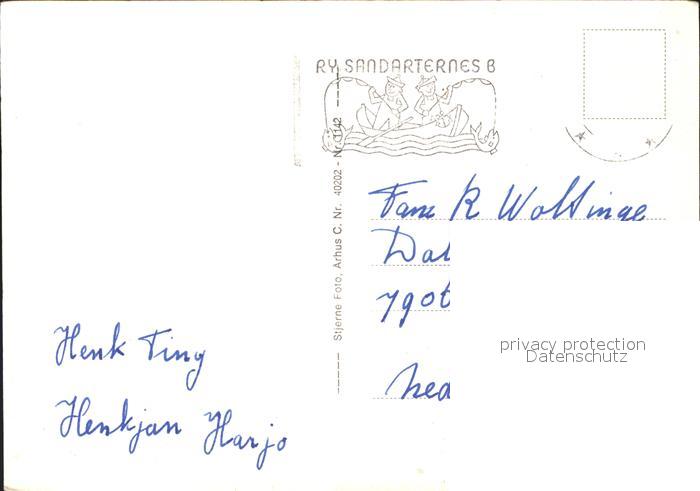 RY SANDARTERNES B
Stjerne Foto, Arhus C. Nr. 40202 - Nr. 1142
Fam R Woltinge
Dal
7901
privacy protection
Datenschutz
Nea
Henk Tiny
Henkjan Harjo